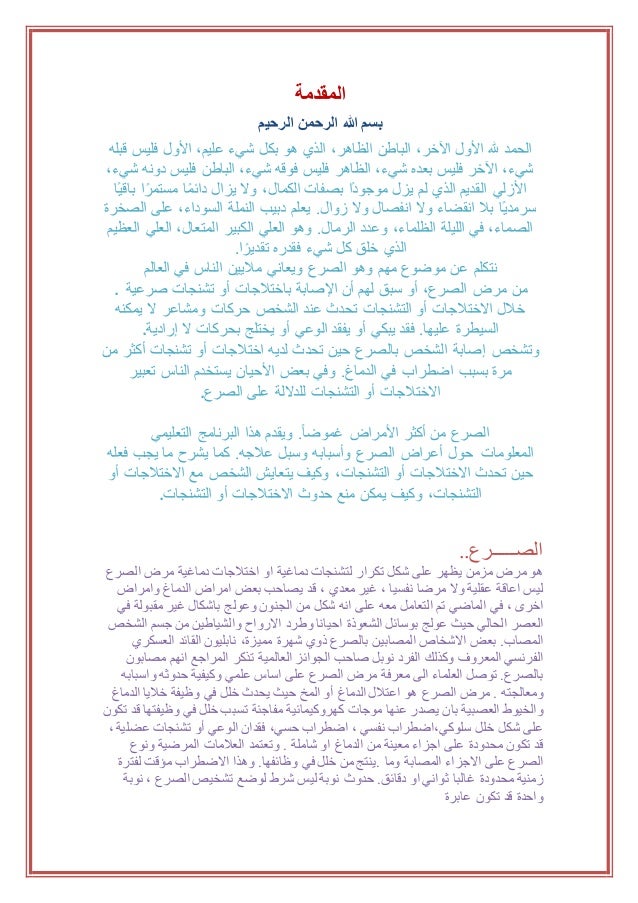 المقدمة
بسم الله الرحمن الرحيم
الحمد لله الأول الآخر، الباطن الظاهر، الذي هو بكل شيء عليم، الأول فليس قبله
شيء، الآخر فليس بعده شيء، الظاهر فليس فوقه شيء، الباطن فليس دونه شيء،
الأزلي القديم الذي لم يزل موجودًا بصفات الكمال، ولا يزال دائمًا مستمرًا باقيًا
سرمديًا بلا انقضاء ولا انفصال ولا زوال. يعلم دبيب النملة السوداء، على الصخرة
الصماء، في الليلة الظلماء، وعدد الرمال. وهو العلي الكبير المتعال، العلي العظيم
الذي خلق كل شيء فقدره تقديرًا.
نتكلم عن موضوع مهم وهو الصرع ويعاني ملايين الناس في العالم
من مرض الصرع، أو سبق لهم أن الإصابة باختلاجات أو تشنجات صرعية .
خلال الاختلاجات أو التشنجات تحدث عند الشخص حركات ومشاعر لا يمكنه
السيطرة عليها. فقد يبكي أو يفقد الوعي أو يختلج بحركات لا إرادية.
وتشخص إصابة الشخص بالصرع حين تحدث لديه اختلاجات أو تشنجات أكثر من
مرة بسبب اضطراب في الدماغ. وفي بعض الأحيان يستخدم الناس تعبير
الاختلاجات أو التشنجات للدلالة على الصرع.
الصرع من أكثر الأمراض غموضاً. ويقدم هذا البرنامج التعليمي
المعلومات حول أعراض الصرع وأسبابه وسبل علاجه. كما يشرح ما يجب فعله
حين تحدث الاختلاجات أو التشنجات، وكيف يتعايش الشخص مع الاختلاجات أو
التشنجات، وكيف يمكن منع حدوث الاختلاجات أو التشنجات.
الصـــــرع..
هو مرض مزمن يظهر على شكل تكرار لتشنجات دماغية او اختلاجات دماغية مرض الصرع
ليس اعاقة عقلية ولا مرضا نفسيا ، غير معدي ، قد يصاحب بعض امراض الدماغ وامراض
اخرى ، في الماضي تم التعامل معه على انه شكل من الجنون وعولج باشكال غير مقبولة في
العصر الحالي حيث عولج بوسائل الشعوذة احيانا وطرد الارواح والشياطين من جسم الشخص
المصاب. بعض الاشخاص المصابين بالصرع ذوي شهرة مميزة، نابليون القائد العسكري
الفرنسي المعروف وكذلك الفرد نوبل صاحب الجوائز العالمية تذكر المراجع انهم مصابون
بالصرع. توصل العلماء الى معرفة مرض الصرع على اساس علمي وكيفية حدوثه واسبابه
ومعالجته . مرض الصرع هو اعتلال الدماغ أو المخ حيث يحدث خلل في وظيفة خلايا الدماغ
والخيوط العصبية بان يصدر عنها موجات كهروكيميائية مفاجئة تسبب خلل في وظيفتها قد تكون
على شكل خلل سلوكي،اضطراب نفسي ، اضطراب حسي، فقدان الوعي أو تشنجات عضلية ،
قد تكون محدودة على اجزاء معينة من الدماغ او شاملة . وتعتمد العلامات المرضية ونوع
الصرع على الاجزاء المصابة وما .ينتج من خلل في وظائفها. وهذا الاضطراب مؤقت لفترة
زمنية محدودة غالبا ثواني او دقائق. حدوث نوبة ليس شرط لوضع تشخيص الصرع ، نوبة
واحدة قد تكون عابرة